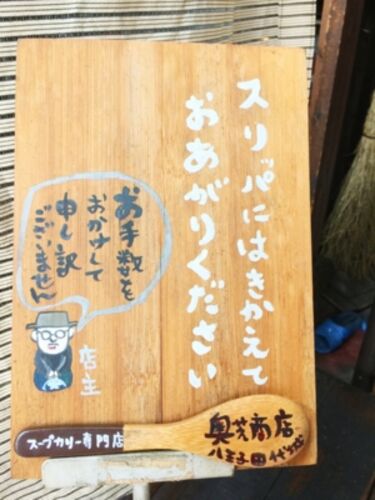 スリパにはきかえて
おあがりください
お手数を
おかけして
申し訳
ございません
店主
スープカリー専門店
奥芝商店